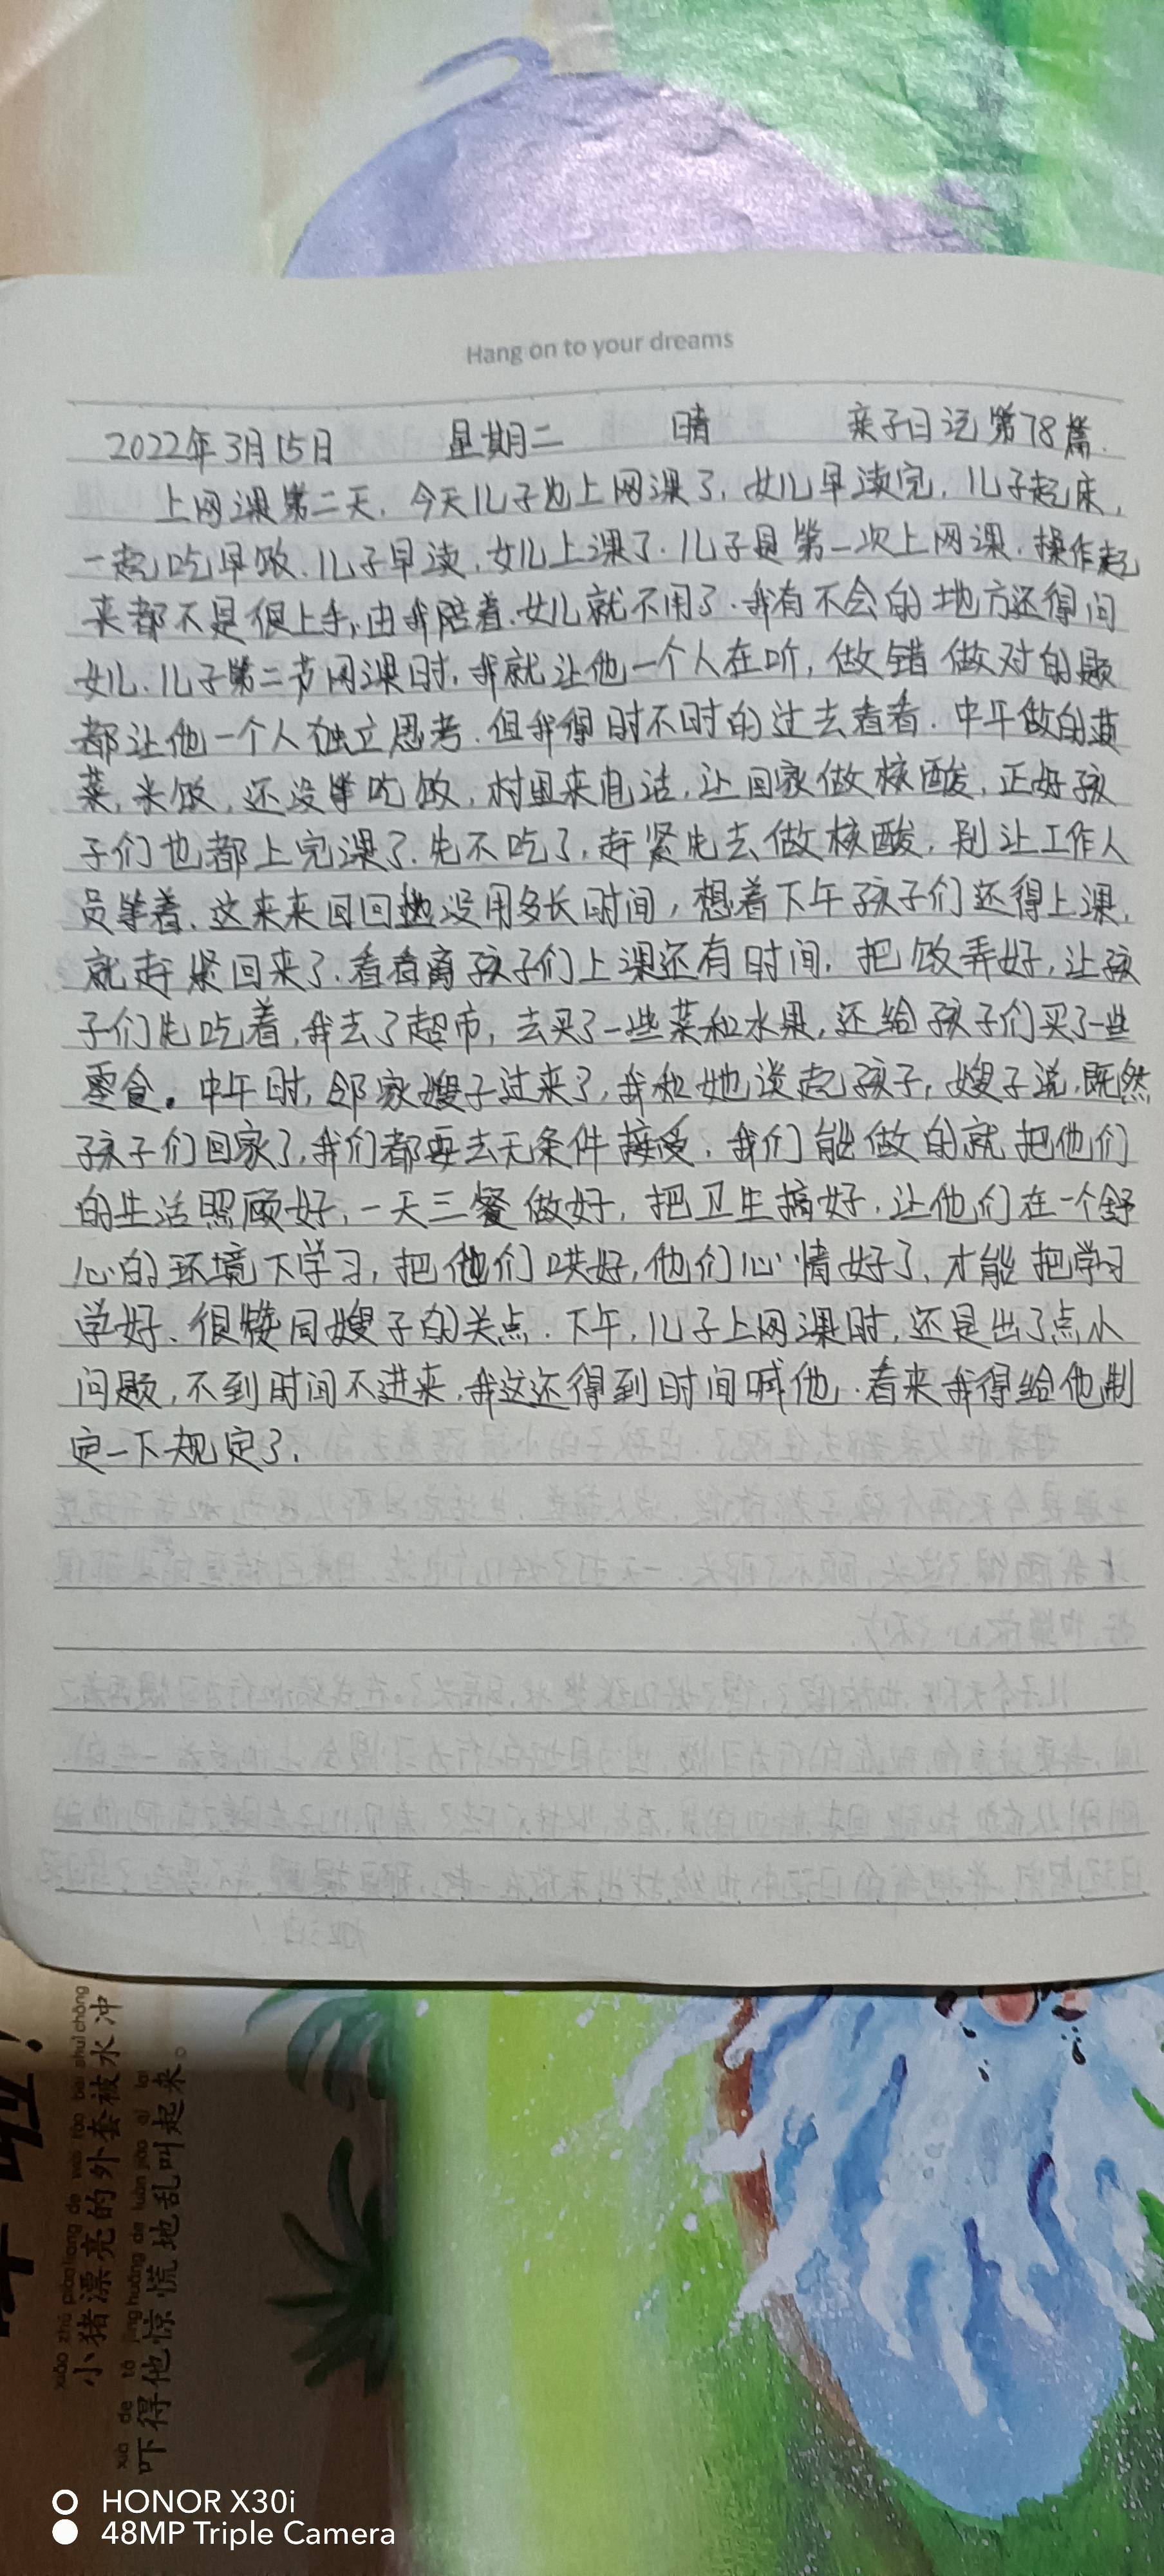 Hang on to your dreams
2022年3月15日 星期二 晴 亲子日记第78篇.
上网课第二天,今天儿子也上网课了,女儿早读完,儿子起床,
一起吃早饭.儿子早读,女儿上课了.儿子是第一次上网课,操作起
来都不是很上手,由我陪着.女儿就不用了.我有不会的地方还得问
女儿.儿子第二节网课时,我就让他一个人在听,做错做对的题
都让他一个人独立思考.但我得时不时的过去看看.中午做的
菜,米饭,还没等吃饭,村里来电话,让回家做核酸,正好孩
子们也都上完课了.先不吃了,赶紧先去做核酸,别让工作人
员等着.这来来回回也没用多长时间,想着下午孩子们还得上课,
就赶紧回来了.看看离孩子们上课还有时间,把饭弄好,让孩
子们先吃着,我去了超市,去买了一些菜和水果,还给孩子们买了一些
零食。中午时,邻家嫂子过来了,我和她谈起孩子,嫂子说,既然
孩子们回家了,我们都要去无条件接受,我们能做的就把他们
的生活照顾好,一天三餐做好,把卫生搞好,让他们在一个舒
心的环境下学习,把他们哄好,他们心情好了,才能把学习
学好.很赞同嫂子的关点.下午,儿子上网课时,还是出了点小
问题,不到时间不进来,我这还得到时间喊他.看来我得给他制
定一下规定了.
xiǎo zhū piào liang de wài tào bèi shuǐ chōng
小猪漂亮的外套被水冲
xià de tā jīng huāng de luàn jiào qǐ lai
吓得他惊慌地乱叫起来。
HONOR X30i
48MP Triple Camera